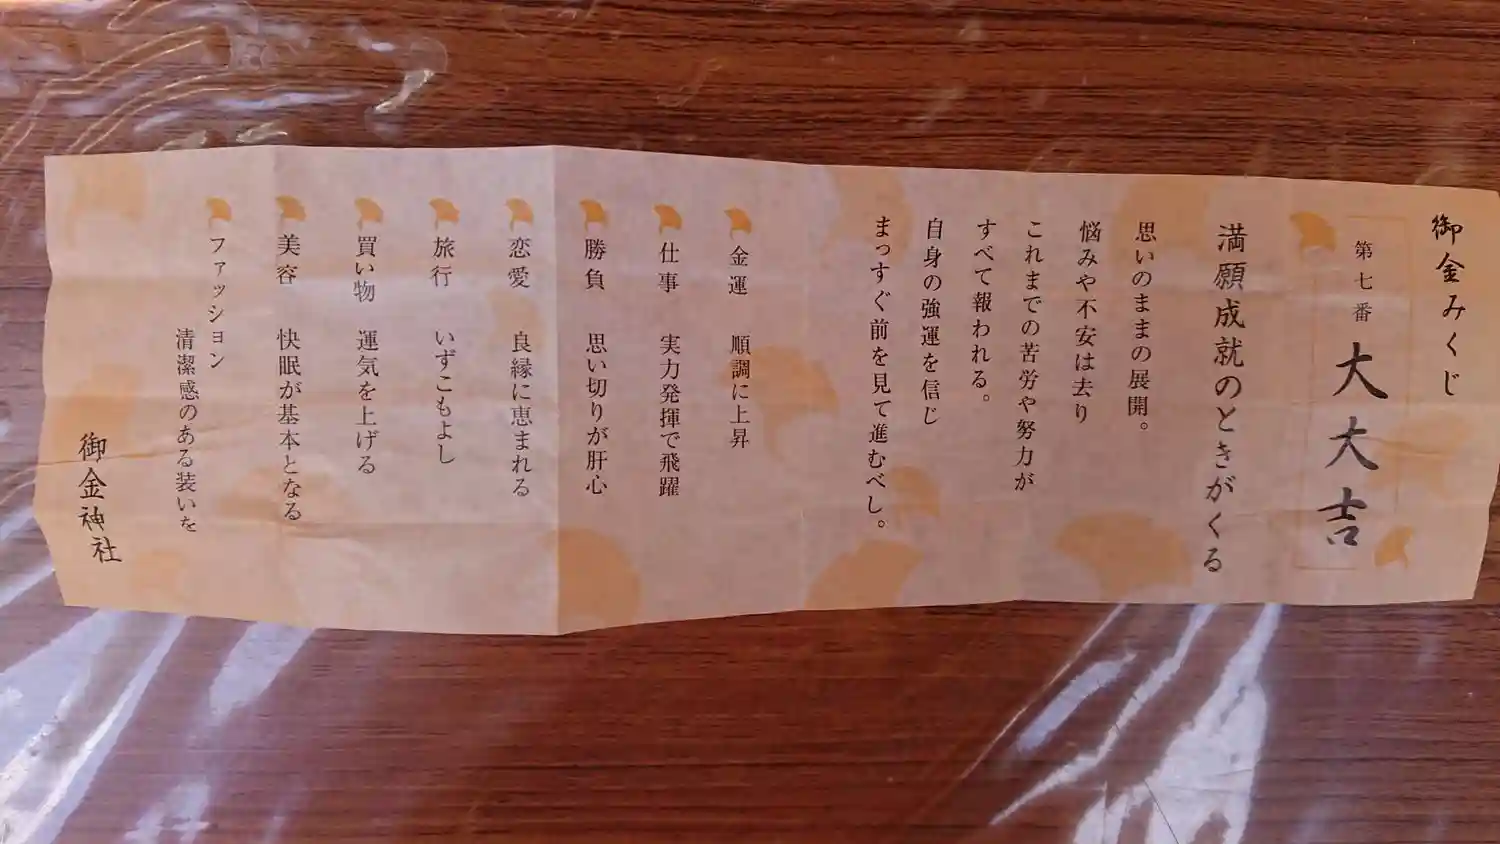 御金みくじ
第七番 大大吉
満願成就のときがくる
思いのままの展開。
悩みや不安は去り
これまでの苦労や努力が
すべて報われる。
自身の強運を信じ
まっすぐ前を見て進むべし。
金運 順調に上昇
仕事 実力発揮で飛躍
勝負 思い切りが肝心
恋愛 良縁に恵まれる
旅行 いずこもよし
買い物 運気を上げる
美容 快眠が基本となる
ファッション
清潔感のある装いを
御金神社